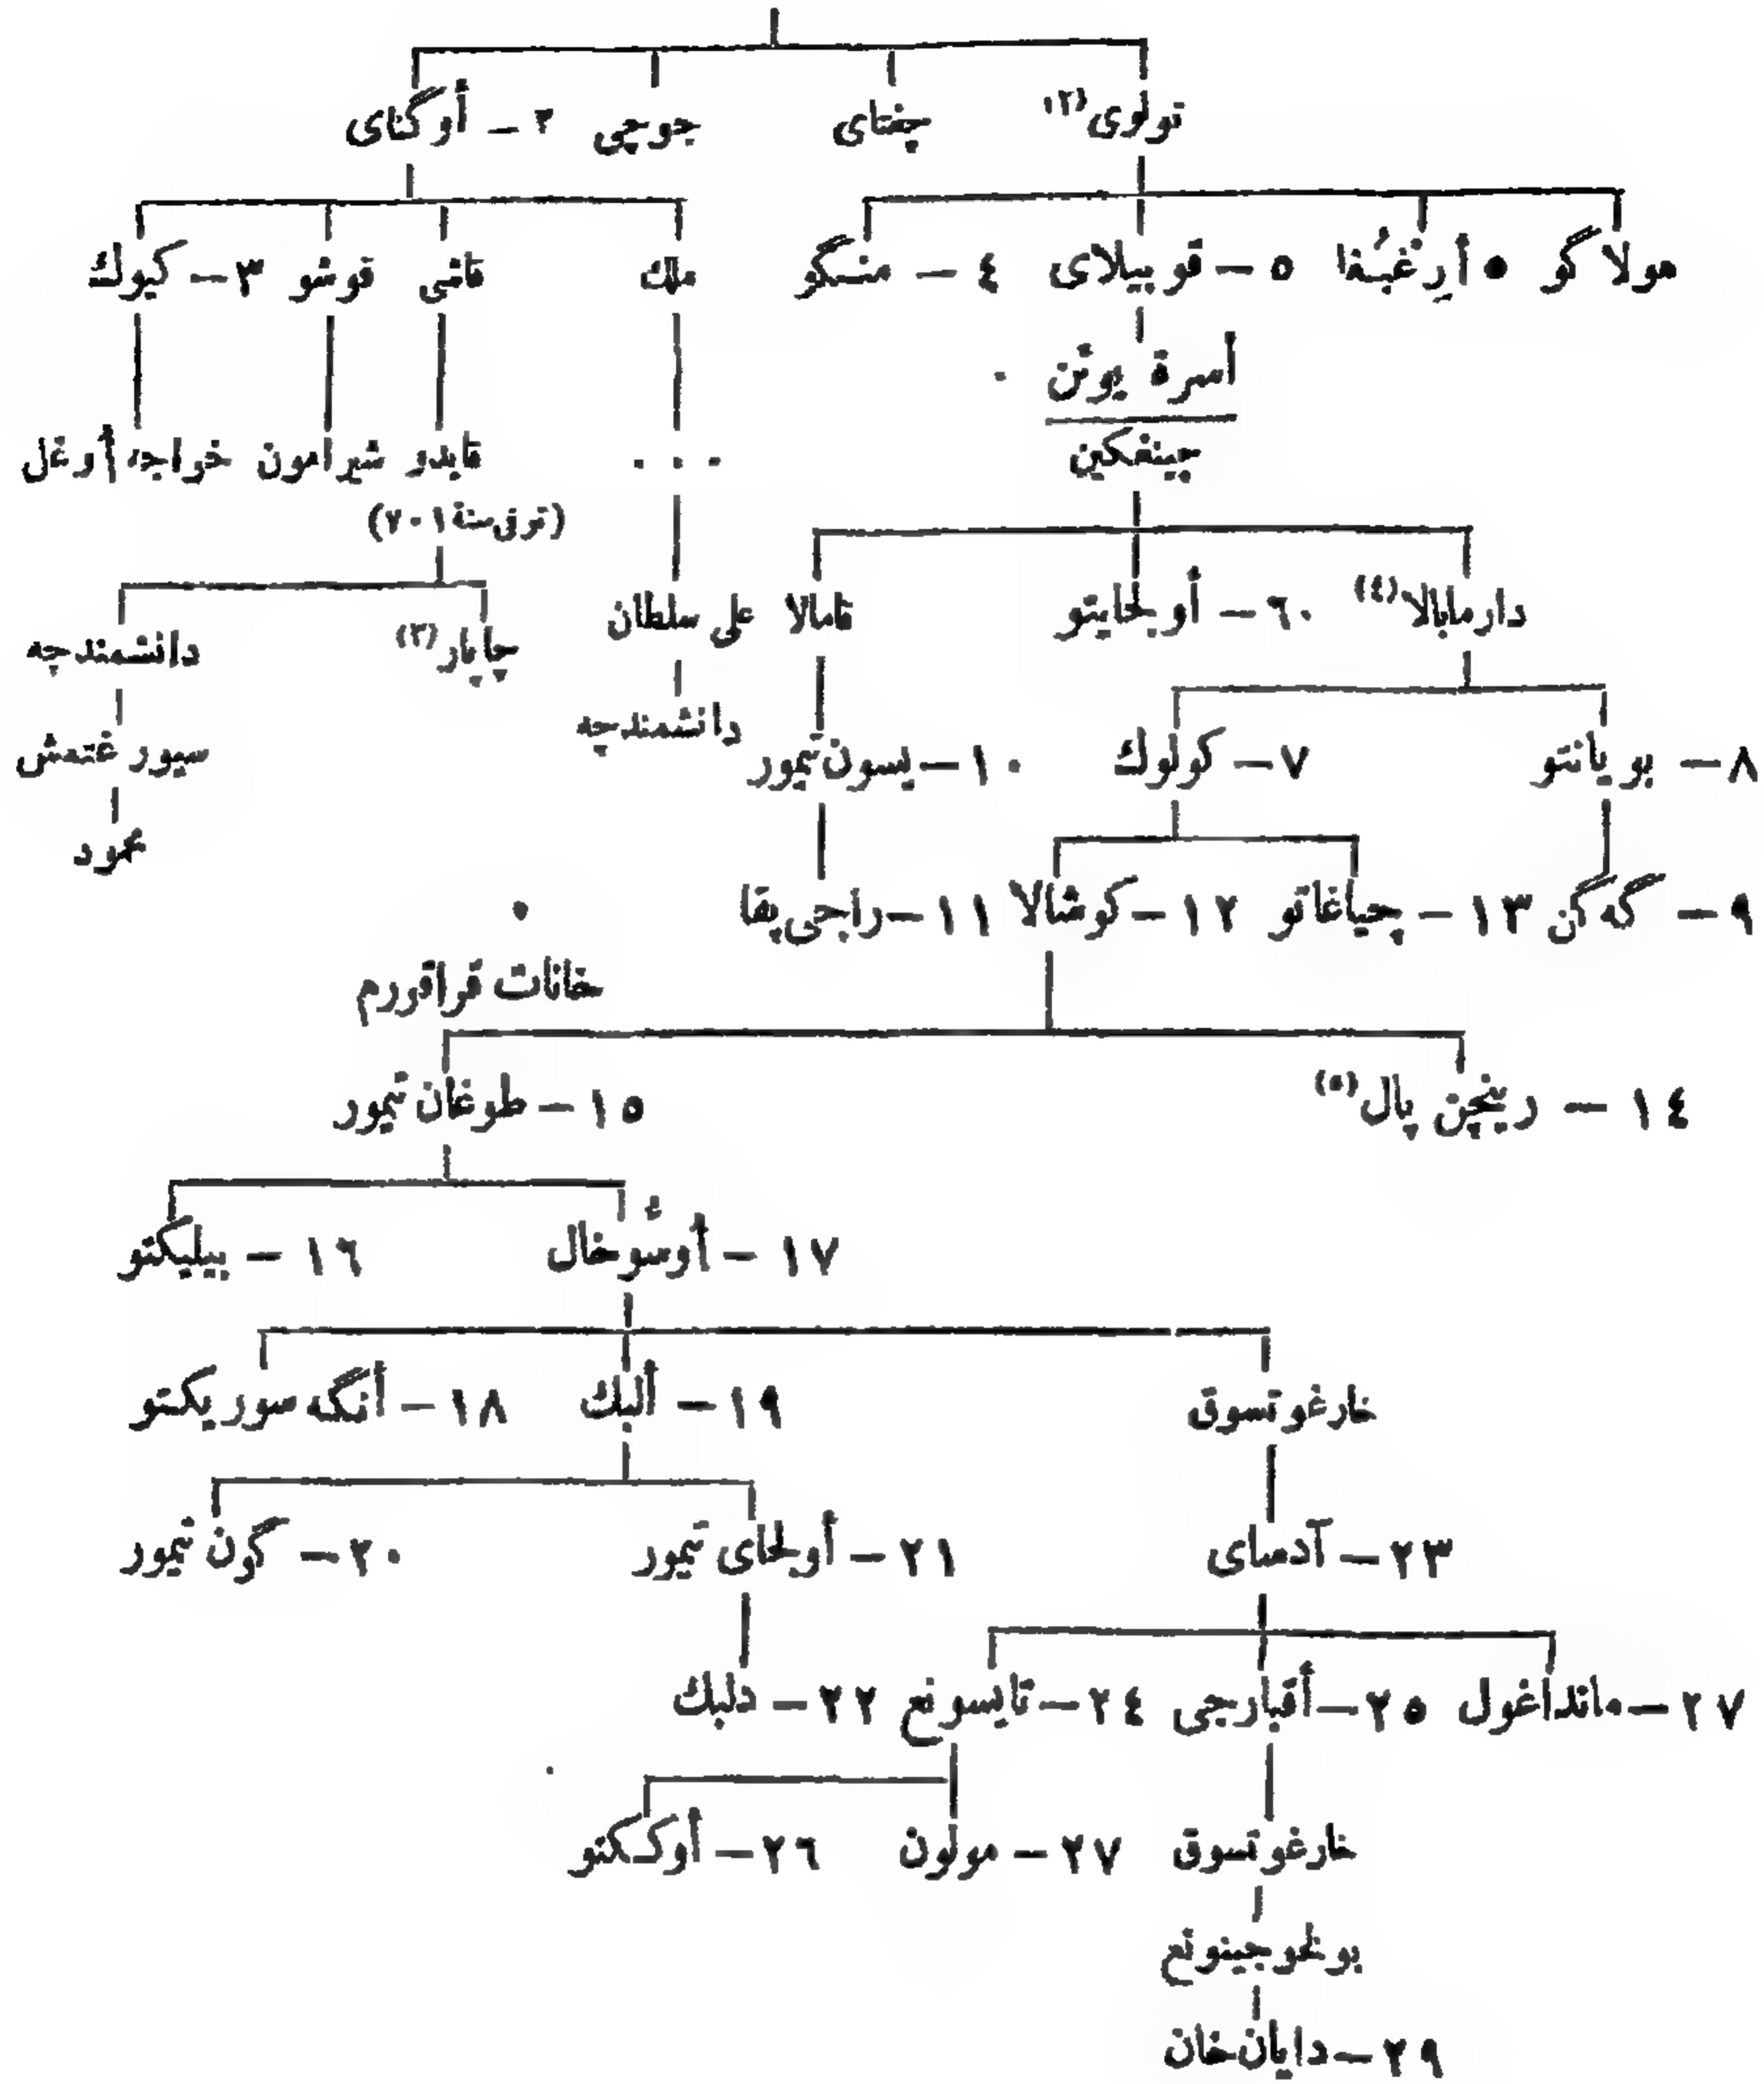 تولوی (٢) چغتای جوجی ٢ - أوگتای
مولاگو ٥ أرِغبُغا ٥ - قوبیلای ٤ - منگو ملك قاشی قوشو ٣ - كیوك
أسرة یوئن
جینفكین
. . . قایدو شیرامون خواجه أوغل
(توفى سنة ٧٠١)
دارمابالا (٤) ٦ - أولجایتو قامالا علی سلطان
چاپار (٣) دانشمندچه
دانشمندچه
٨ - بویانتو ٧ - كولوك ١٠ - یسون تیمور سیورغتمش
محمود
٩ - گه گن ١٣ - جیاغاتو ١٢ - كوشالا ١١ - راجی بقا
خانات قراقورم
١٤ - رینچن پال (٥) ١٥ - طوغان تیمور
١٧ - أوسُوخال ١٦ - بیلیكتو
خارغوتسوق ١٩ - ألبك ١٨ - أنگه سوریكتو
٢٣ - آدسای ٢١ - أولجای تیمور ٢٠ - گون تیمور
٢٧ - مانداغول ٢٥ - أقبارجی ٢٤ - تایسونغ ٢٢ - دلبك
خارغوتسوق ٢٧ - مولون ٢٦ - أوككتو
بولخو جینونغ
٢٩ - دایان خان